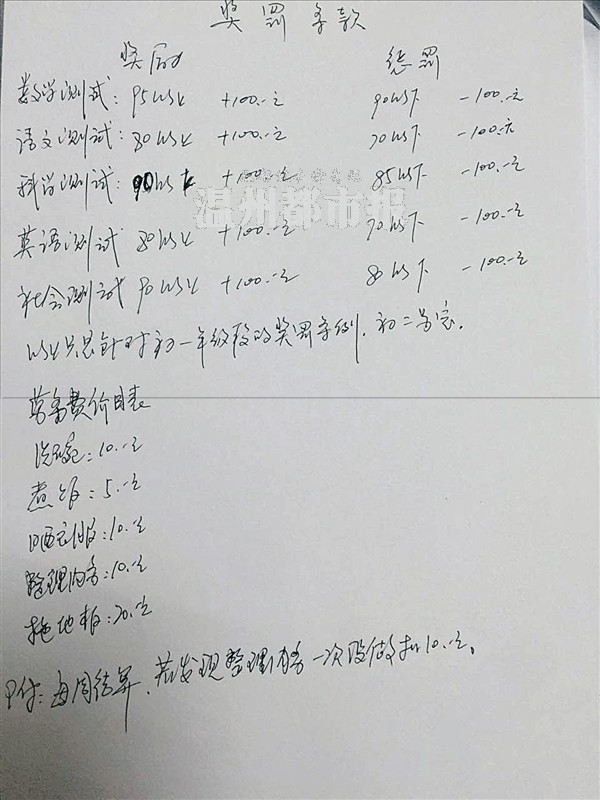 奖罚条款
奖励 惩罚
数学测试: 95以上 +100.-元 90以下 -100.-元
语文测试: 80以上 +100.-元 70以下 -100.-元
科学测试: 90以上 +100.-元 85以下 -100.-元
温州都市报
英语测试 80以上 +100.-元 70以下 -100.-元
社会测试 90以上 +100.-元 80以下 -100.-元
以上只是针对初一年级段的奖罚条例,初二另定.
劳务费价目表
洗碗:10.-元
煮饭:5.-元
晒衣服:10.-元
整理内务:10.-元
拖地板:20.-元
附:每周结算,若发现整理内务一次没做扣10.-元。